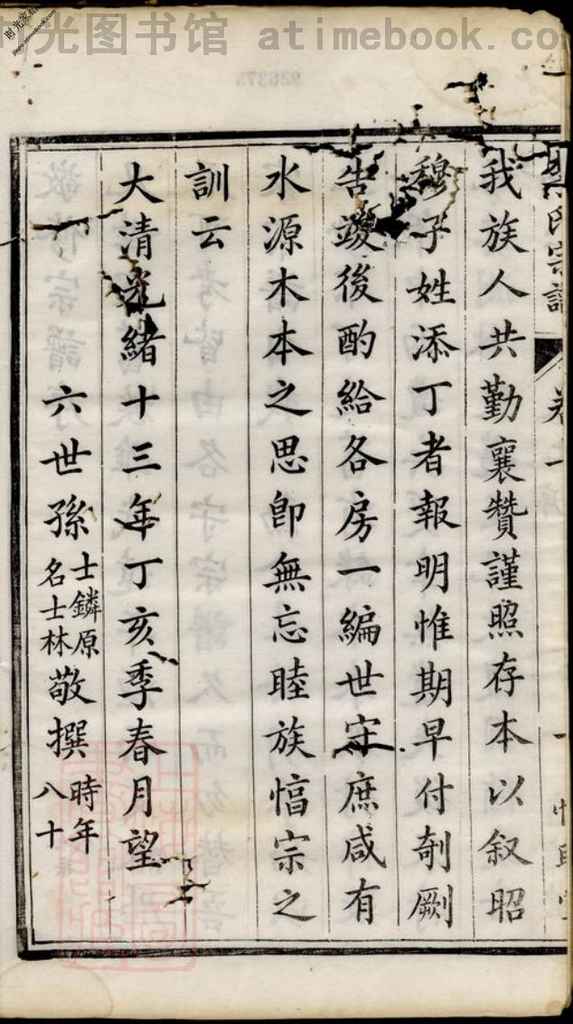 时光图书馆 atimebook.com
氏宗譜
卷一
我族人共勤襄贊謹照存本以叙昭
穆子姓添丁者報明惟期早付剞劂
告竣後酌給各房一編世守庶咸有
水源木本之思即無忘睦族惇宗之
訓云
大清光緒十三年丁亥季春月望
六世孫士鏻原名士林敬撰時年八十